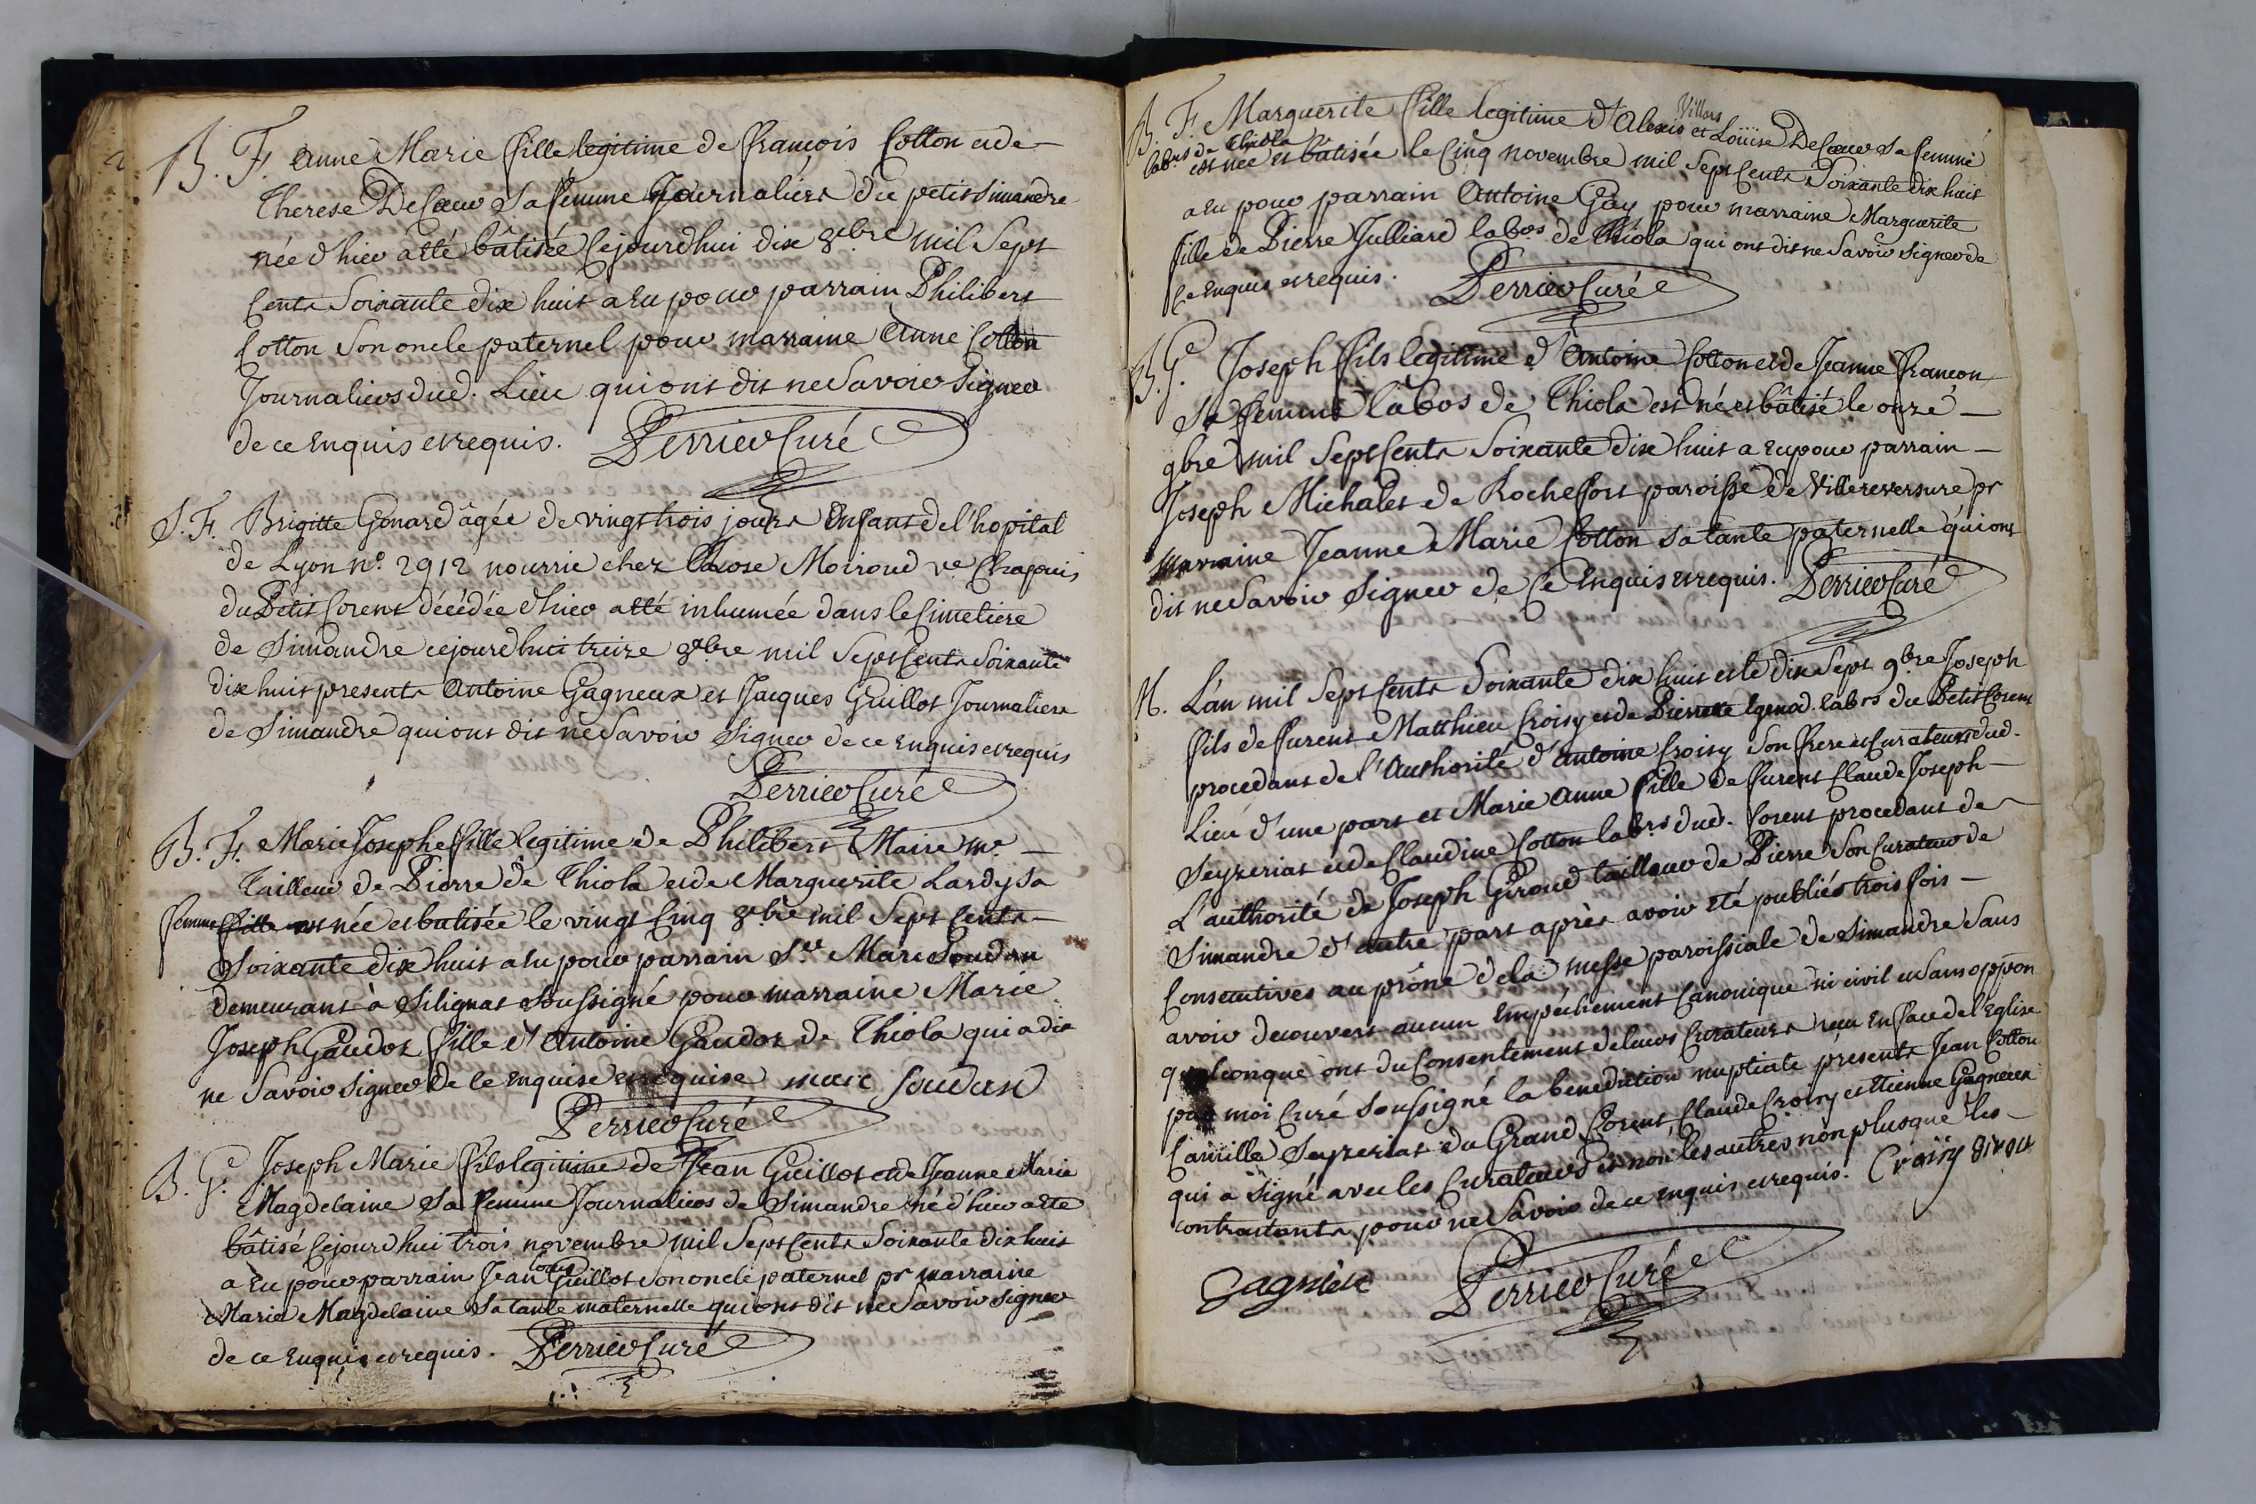 B. F. Anne Marie fille legitime de francois Cotton et de
Therese DeCoeur Sa femme Journaliers du petit Simandre
née d'hier a été bâtisée Cejourdhui dix 8.bre mil Sept
Cents Soixante dix huit a eu pour parrain Philibert
Cotton Son oncle paternel pour marraine Anne Cotton
Journaliers dud. Lieu qui ont dit ne Savoir Signer
de ce Enquis et requis. Perrier Curé
S. F. Brigitte Gonard âgée de vingt trois jours Enfant de l'hopital
de Lyon n.o 2912 nourrie chez Rose Moiroud v.e Chapuis
du Petit Corent décédée d'hier a été inhumée dans le Cimetiere
de Simandre cejourdhui treize 8.bre mil Sept Cents Soixante
dix huit presents Antoine Gagneux et Jacques Guillot Journaliers
de Simandre qui ont dit ne Savoir Signer de ce Enquis et requis
Perrier Curé
B. F. Marie Josephe fille legitime de Philibert Maire m.e
Tailleur de Pierre de Thiola et de Marguerite Lardy Sa
femme est née et batisée le vingt Cinq 8.bre mil Sept Cents
Soixante dix huit a eu pour parrain S.r Marc Soudan
demeurant à Silignat Soussigné pour marraine Marie
Joseph Gaudot fille d'Antoine Gaudot de Thiola qui a dit
ne Savoir Signer de ce Enquise et requise marc Soudan
Perrier Curé
B. G. Joseph Marie fils legitime de Jean Guillot et de Jeanne Marie
Magdelaine Sa femme Journaliers de Simandre né d'hier a été
bâtisé Cejourdhui trois novembre mil Sept Cents Soixante dix huit
a eu pour parrain Jean Guillot Son oncle paternel pr marraine
Marie Magdelaine Sa tante maternelle qui ont dit ne Savoir Signer
de ce Enquis et requis. Perrier Curé
Villars
B. F. Marguerite fille legitime d'Alexis et Louise DeCoeur Sa femme
labrs de Thiola
est née et bâtisée le Cinq novembre mil Sept Cents Soixante dix huit
a eu pour parrain Antoine Gay pour marraine Marguerite
fille de Pierre Julliard labos de Thiola qui ont dit ne Savoir Signer de
Ce Enquis et requis. Perrier Curé
B. G. Joseph fils legitime d'Antoine Cotton et de Jeanne Francon
Sa femme labos de Thiola est né et bâtisé le onze
9bre mil Sept Cents Soixante dix huit a eu pour parrain
Joseph Michalet de Rochefort paroisse de Villereversure pr
marraine Jeanne Marie Cotton Sa tante paternelle qui ont
dit ne Savoir Signer de Ce Enquis et requis. Perrier Curé
M. L'an mil Sept Cents Soixante dix huit et le dix Sept 9.bre Joseph
fils de furent Matthieu Croisy et de Pierrette labrs du Petit Corent
procedant de l'Authorité d'Antoine Croisy Son frere et Curateur dud.
Lieu d'une part et Marie Anne fille de furent Claude Joseph
Seyzeriat et de Claudine Cotton labrs dud. Corent procedant de
L'authorité de Joseph Giroud tailleur de Pierre Son Curateur de
Simandre d'autre part après avoir été publiés trois fois
Consecutives au prône de la messe paroissiale de Simandre Sans
avoir decouvert aucun Empéchement Canonique ni civil et Sans oppon
quelconque ont du Consentement de leurs Curateurs recu En face de l'Eglise
par moi Curé Soussigné la benediction nuptiale presents Jean Cotton
Camille Seyzeriat du Grand Corent, Claude Croisy et Etienne Gagneux
qui a Signé avec les Curateurs et non les autres non plus que les
contractants pour ne Savoir de ce enquis et requis. Croisy Girout
Gagnieux Perrier Curé